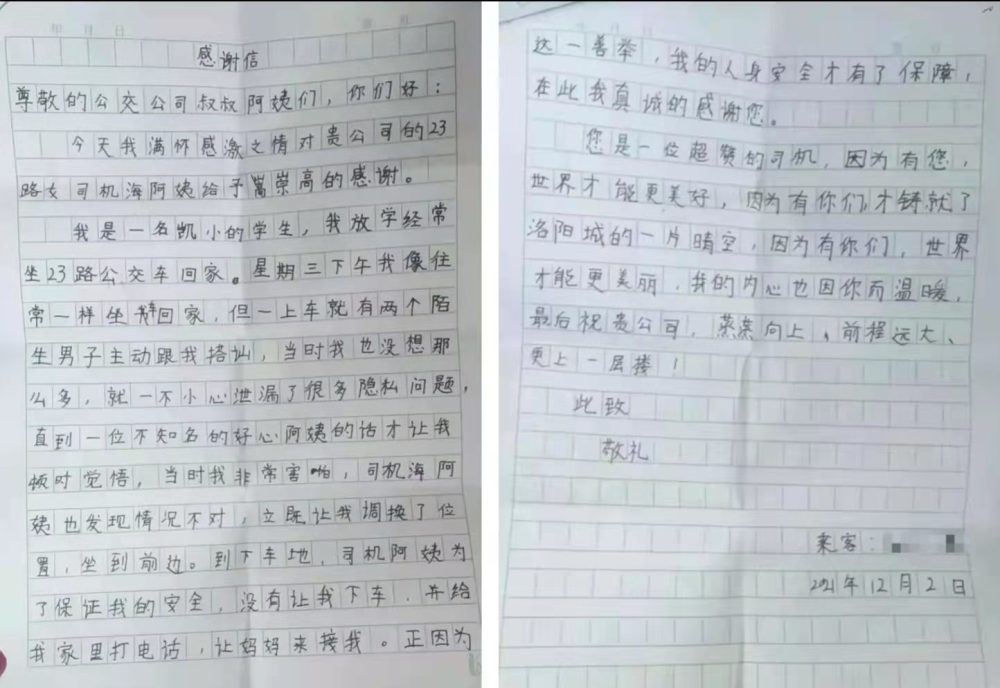 感谢信
尊敬的公交公司叔叔阿姨们，你们好：
今天我满怀感激之情对贵公司的23
路女司机海阿姨给予崇高的感谢。
我是一名凯小的学生，我放学经常
坐23路公交车回家。星期三下午我像往
常一样坐车回家，但一上车就有两个陌
生男子主动跟我搭讪，当时我也没想那
么多，就一不小心泄漏了很多隐私问题，
直到一位不知名的好心阿姨的话才让我
顿时觉悟，当时我非常害怕，司机海阿
姨也发现情况不对，立既让我调换了位
置，坐到前边。到下车地，司机阿姨为
了保证我的安全，没有让我下车，并给
我家里打电话，让妈妈来接我。正因为
这一善举，我的人身安全才有了保障，
在此我真诚的感谢您。
您是一位超赞的司机，因为有您，
世界才能更美好，因为有你们才铸就了
洛阳城的一片晴空，因为有你们，世界
才能更美丽，我的内心也因你而温暖，
最后祝贵公司，蒸蒸向上，前程远大、
更上一层楼！
此致
敬礼
乘客：
2021年12月2日